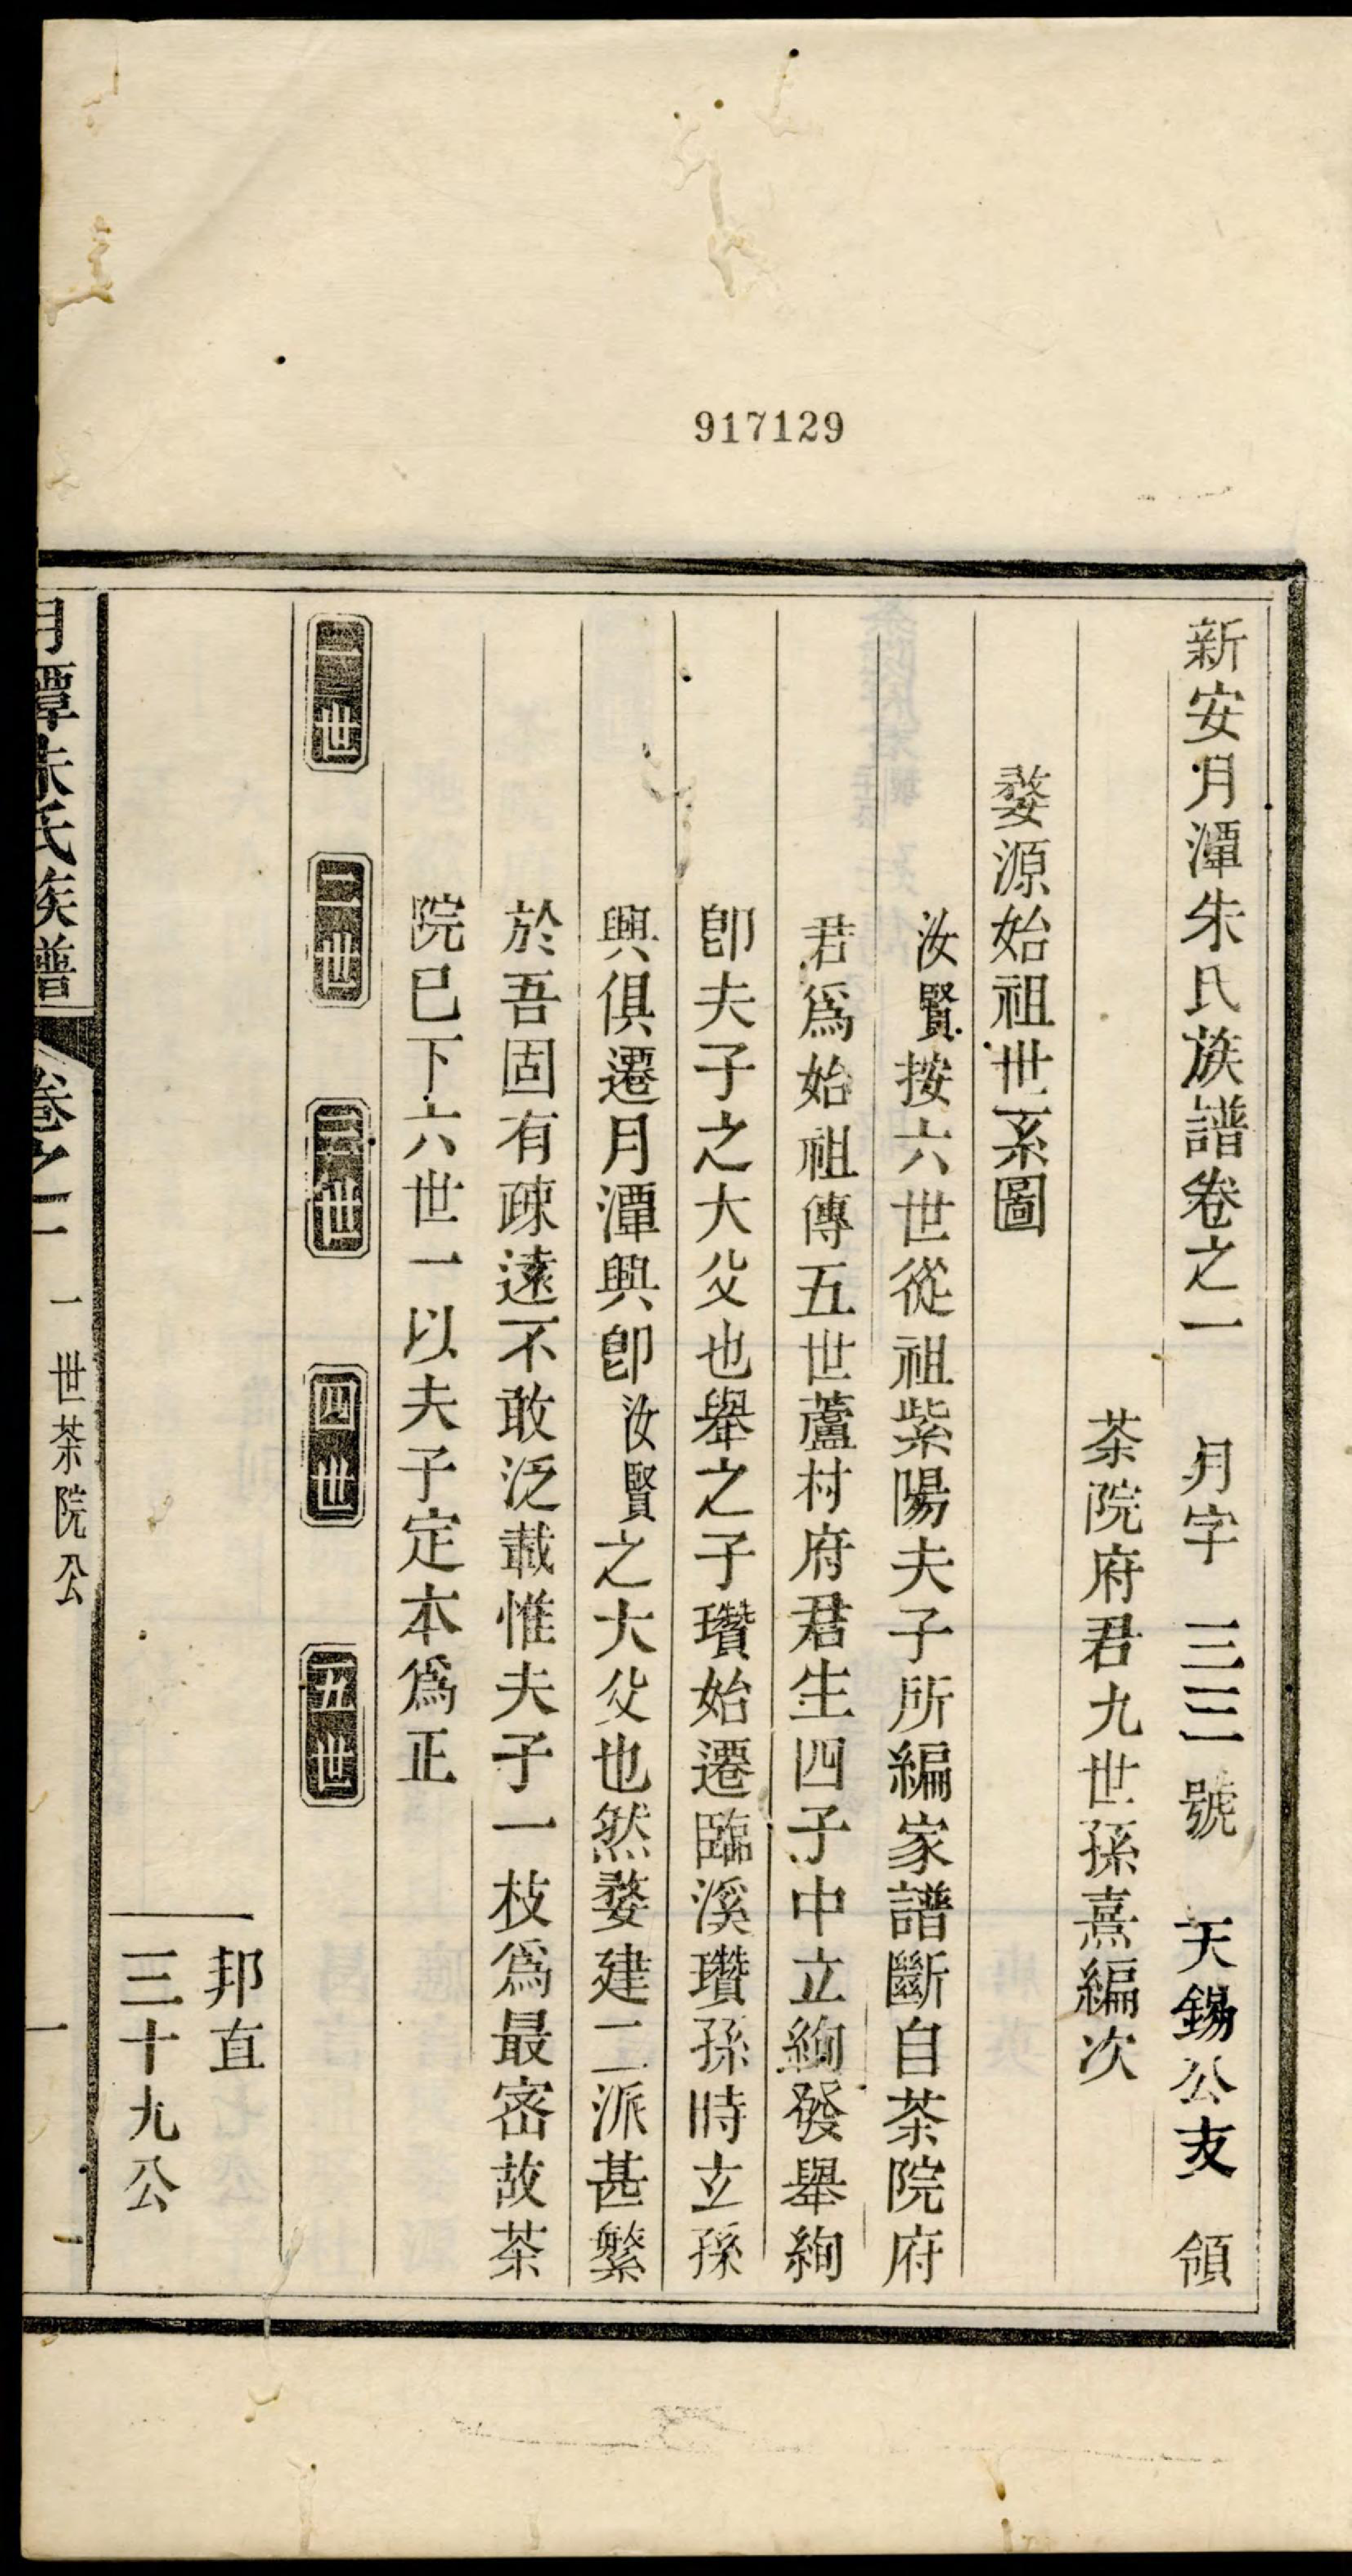 917129
新安月潭朱氏族譜卷之一　月字　三三　號　天錫公支　領
茶院府君九世孫熹編次
婺源始祖世系圖
汝賢按六世從祖紫陽夫子所編家譜斷自茶院府
君爲始祖傳五世蘆村府君生四子中立絢發舉絢
卽夫子之大父也舉之子瓚始遷臨溪瓚孫時立孫
興俱遷月潭興卽汝賢之大父也然婺建二派甚繁
於吾固有疎遠不敢泛載惟夫子一枝爲最密故茶
院巳下六世一以夫子定本爲正
一世　二世　三世　四世　五世
邦直
三十九公
月潭朱氏族譜　卷之一　一世茶院公　一